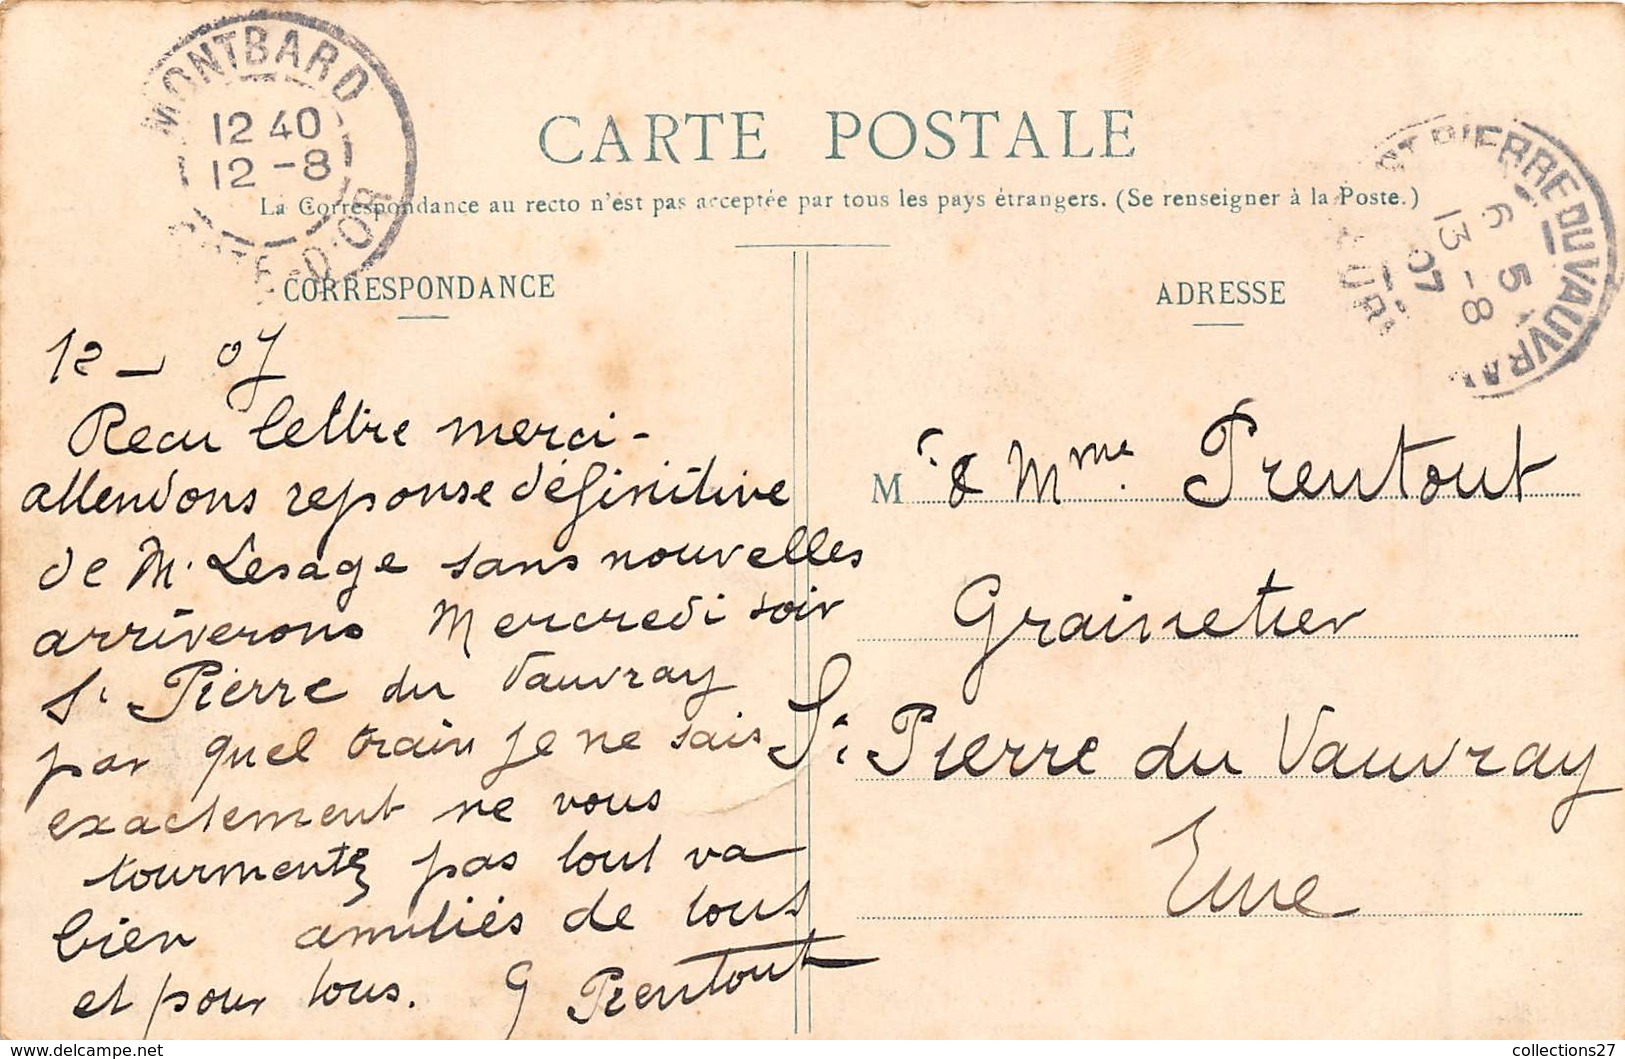 MONTBARD
12 40
12 -8
CÔTE-D'OR
CARTE POSTALE
La Correspondance au recto n'est pas acceptée par tous les pays étrangers. (Se renseigner à la Poste.)
ST PIERRE DU VAUVRAY
6 5
13 -8
07
EURE
CORRESPONDANCE
12 - 07
Recu lettre merci -
attendons reponse définitive
de M. Lesage sans nouvelles
arriverons Mercredi soir
St Pierre du Vauvray
par quel train je ne sais
exactement ne vous
tourmentez pas tout va
bien amitiés de tous
et pour tous. G Prentout
ADRESSE
Mr & Mme. Prentout
Grainetier
St Pierre du Vauvray
Eure
collections27